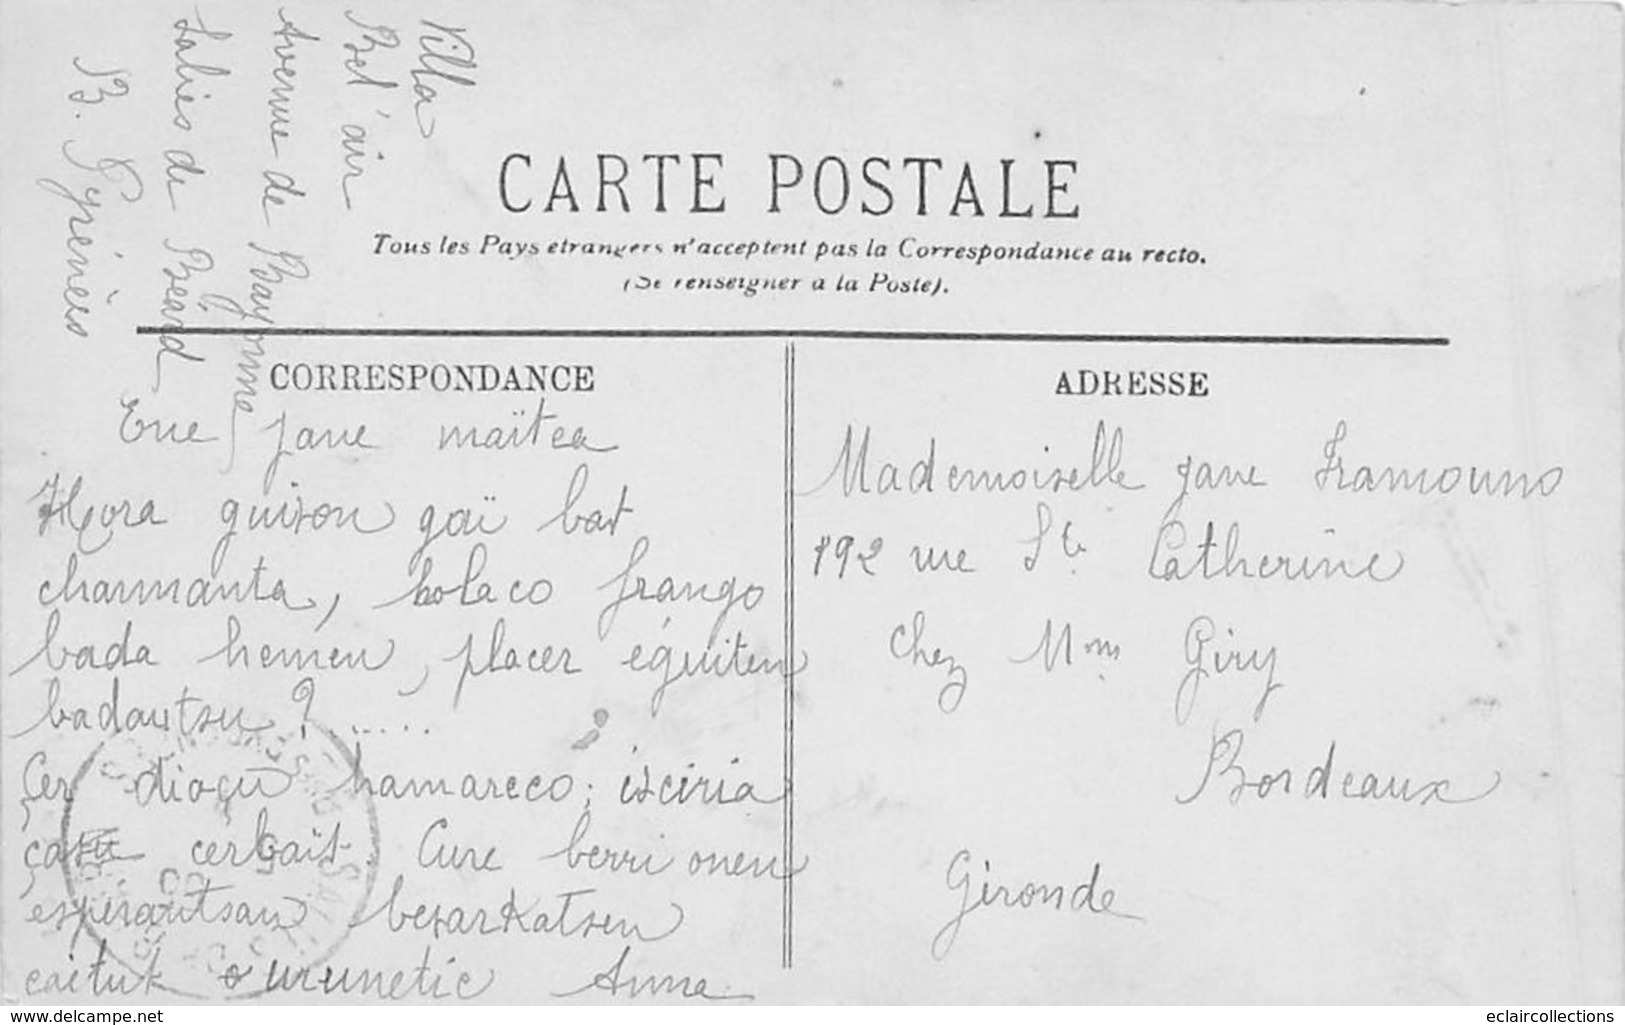 Villa
Bel'air
Avenue de Bayonne
Salies de Béard
B. Pyrénées
CARTE POSTALE
Tous les Pays étrangers n'acceptent pas la Correspondance au recto.
(Se renseigner à la Poste).
CORRESPONDANCE
Ene Jane maïtea
Hora guison gaï bat
charmanta, holaco frango
bada hemen, placer eguiten
badautsu ? .....
Cer dioçu hamareco; isciria
çasu cerbaït. Cure berri onen
esperantsan besarkatsen
caitut Anna
ADRESSE
Mademoiselle Jane Framouno
192 rue Ste Catherine
chez Mme Giry
Bordeaux
Gironde
www.delcampe.net
eclaircollections